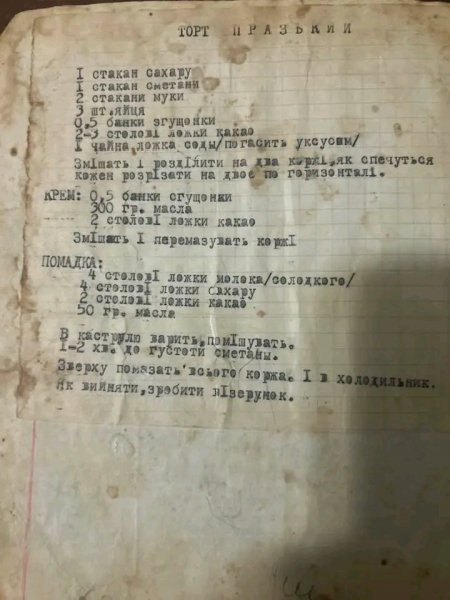 ТОРТ ПРАЗЬКИЙ
І стакан сахару
І стакан сметани
2 стакани муки
3 шт.яйця
0,5 банки згущонки
2-3 столові ложки какао
І чайна ложка соды/погасить уксусым/
Змішать і розділити на два коржі,як спечуться
кожен розрізати на двое по горизонталі.
КРЕМ: 0,5 банки сгущонки
300 гр. масла
2 столові ложки какао
Змішать І перемазувать коржі
ПОМАДКА:
4 столові ложки молока/солодкого/
4 столові ложки сахару
2 столові ложки какао
50 гр. масла
В каструлю варить,помішувать.
І-2 хв. до густоти сметаны.
Зверху помазать всього коржа. І в холодильник.
Як вийняти,зробити візерунок.